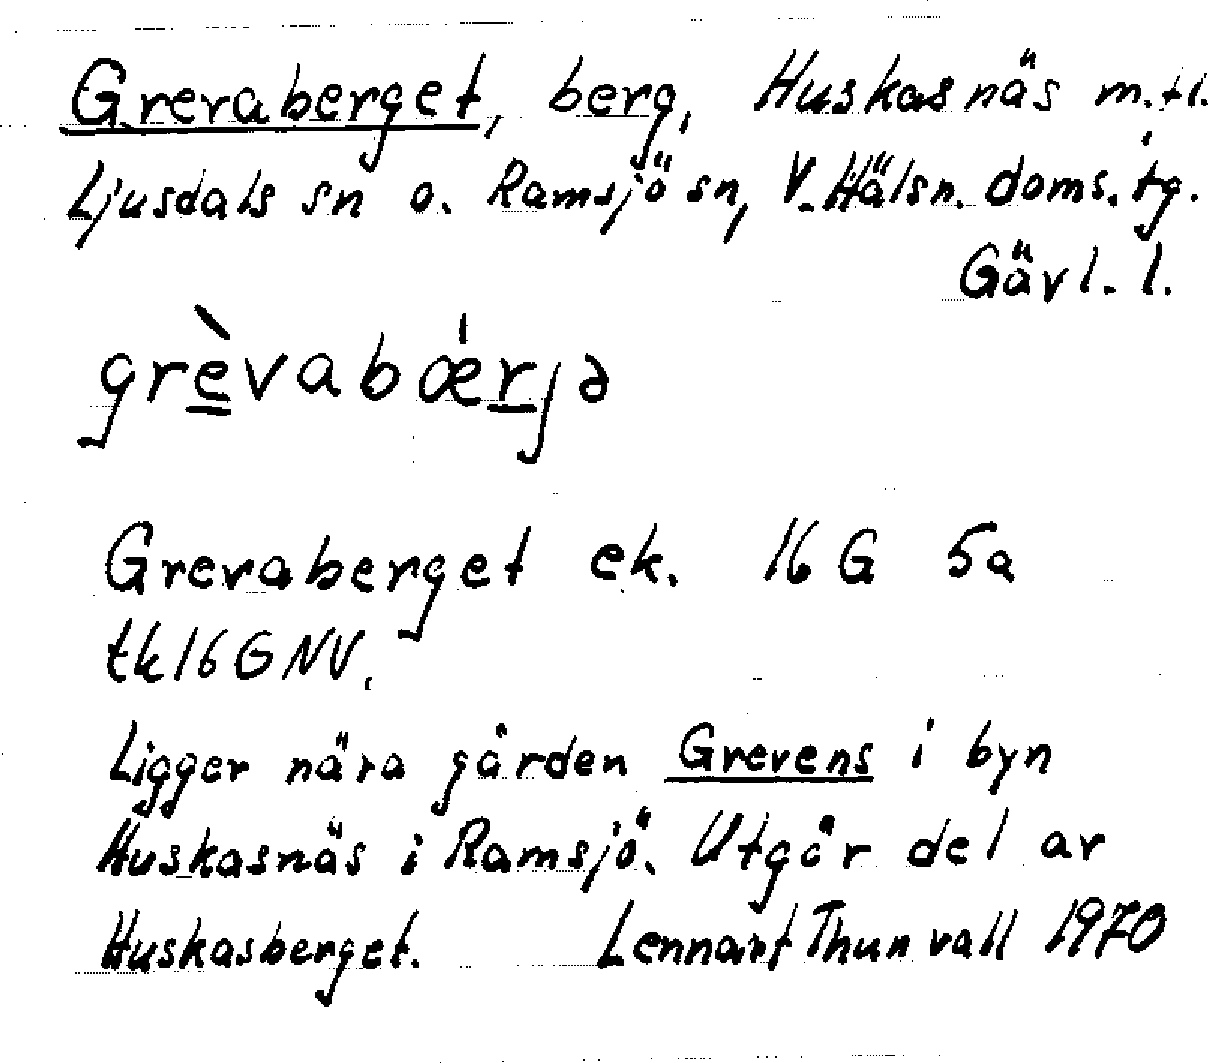 Grevaberget, berg, Huskasnäs m.fl.
Ljusdals sn o. Ramsjö sn, V. Hälsn. doms. tg.
Gävl. l.
grèvabǽrjə
Grevaberget ek. 16 G 5a
tk 16 G NV.
Ligger nära gården Grevens i byn
Huskasnäs i Ramsjö. Utgör del av
Huskasberget. Lennart Thunvall 1970